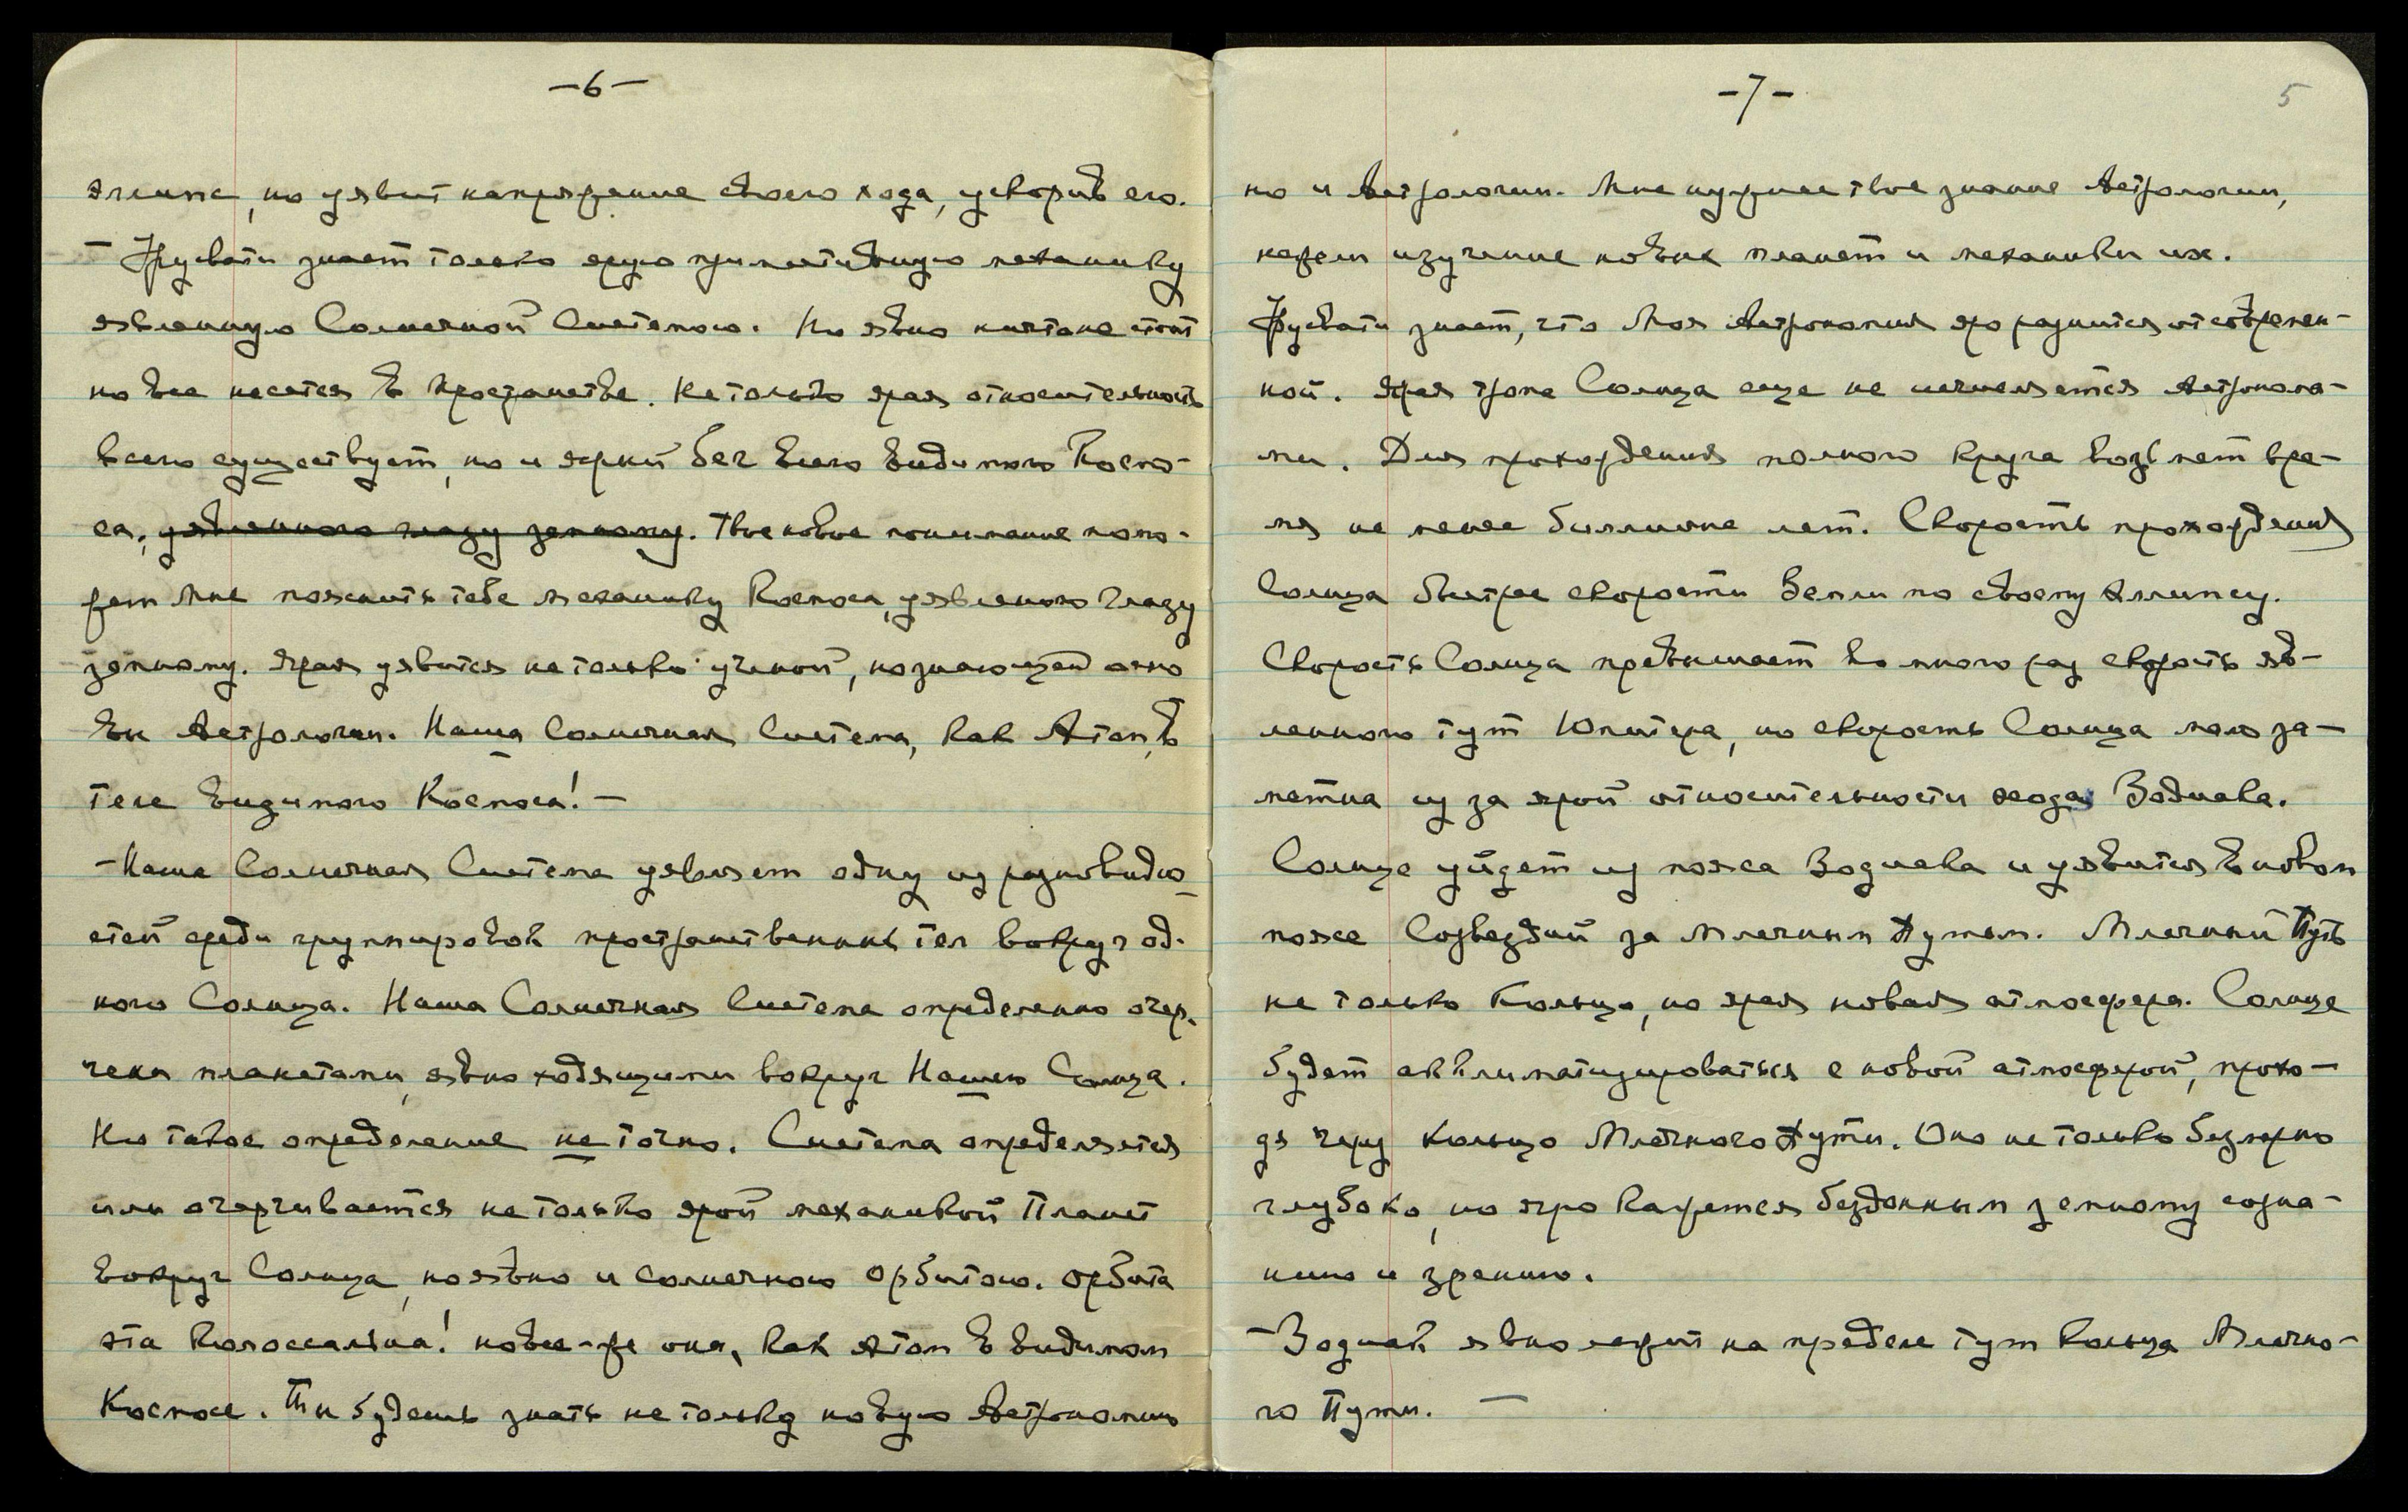 -6-
эллипс, но уявит напряжение своего хода, ускорив его.
— Урусвати знает только ярую примитивную механику
явленную Солнечной Системою. Но явно ничто не стоит
но все несется в пространстве. Не только ярая относительность
всего существует, но и яркий бег всего видимого Космо-
са, уявленного глазу земному. Твое новое понимание помо-
жет Мне пояснить тебе механику Космоса, уявленого глазу
земному. Ярая уявится не только ученой, но знающей осно
вы Астрологии. Наша Солнечная Система, как Атом, в
теле видимого Космоса! —
— Наша Солнечная Система уявляет одну из разновидно-
стей среди группировок пространственных тел вокруг од-
ного Солнца. Наша Солнечная Система определенно очер-
чена планетами, явно ходящими вокруг Нашего Солнца.
Но такое определение не точно. Система определяется
или очерчивается не только ярой механикой Планет
вокруг Солнца, но явно и солнечною орбитою. Орбита
эта колоссальна! но все-же она, как Атом в видимом
Космосе. Ты будешь знать не только новую Астрономию
-7-
5
но и Астрологии. Мне нужнее твое знание Астрологии,
нежели изучение новых планет и механики их.
Урусвати знает, что Моя Астрономия яро разнится от современ-
ной. Ярая тропа Солнца еще не исчисляется Астронома-
ми. Для прохождения полного круга возьмет вре-
мя не менее биллиона лет. Скорость прохождения
Солнца быстрее скорости Земли по своему эллипсу.
Скорость Солнца превышает во много раз скорость яв-
ленного тут Юпитера, но скорость Солнца мало за-
метна из за ярой относительности хода Зодиака.
Солнце уйдет из пояса Зодиака и уявится в новом
поясе Созвездий за Млечным Путем. Млечный Путь
не только Кольцо, но ярая новая атмосфера. Солнце
будет акклиматизироваться с новой атмосферой, прохо-
дя через Кольцо Млечного Пути. Оно не только безмерно
глубоко, но яро кажется бездонным земному созна-
нию и зрению.
— Зодиак явно лежит на пределе тут кольца Млечно-
го Пути. —